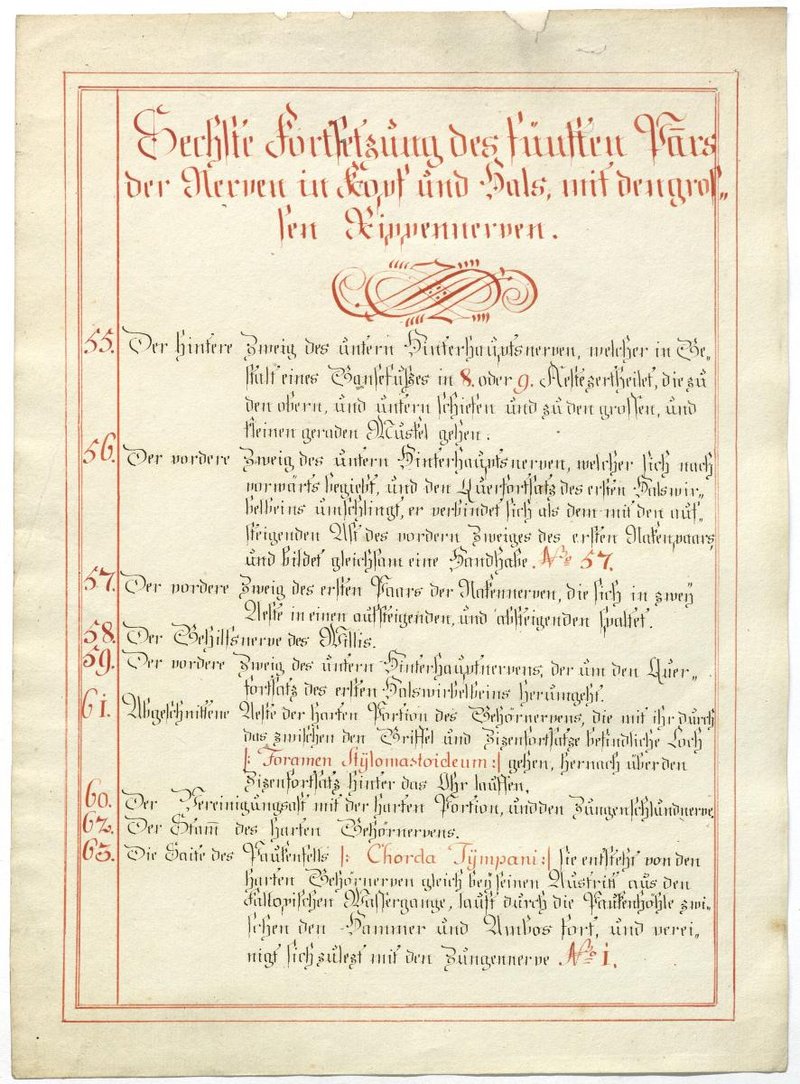 Sechste Fortsetzung des fünften Pārs
der Nerven in Kopf und Hals, mit den gros-
sen Rippennerven.
55. Der hintere Zweig des untern Hinterhauptsnerven, welcher in Ge-
stalt eines Gansefußes in 8. oder 9. Aeste zertheilet, die zu
den obern, und untern schiefen und zu den grossen, und
kleinen geraden Muskel gehen.
56. Der vordere Zweig des untern Hinterhauptsnerven, welcher sich nach
vorwärts begiebt, und den Querfortsatz des ersten Halswir-
belbeins umschlingt, er verbindet sich als dem mit den auf-
steigenden Ast des vordern Zweiges des ersten Nakenpaars,
und bildet gleichsam eine Handhabe. Nro 57.
57. Der vordere Zweig des ersten Paars der Nakennerven, die sich in zweÿ
Aeste in einen aufsteigenden, und absteigenden spaltet.
58. Der Gehilfsnerve des Willis.
59. Der vordere Zweig des untern Hinterhauptnervens, der um den Quer-
fortsatz des ersten Halswirbelbeins herumgeht.
61. Abgeschnittene Aeste der harten Portion des Gehörnervens, die mit ihr durch
das zwischen den Griffel und Zizenfortsatze befindliche Loch
|: Foramen Stÿlomastoideum :| gehen, hernach über den
Zizenfortsatz hinter das Ohr lauffen.
60. Der Vereinigungsast mit der harten Portion, und den Zungenschlundnerve.
62. Der Stam̄ des harten Gehörnervens.
63. Die Saite des Paukenfells |: Chorda Tÿmpani :| sie entsteht von den
harten Gehörnerven gleich beÿ seinen Austritt aus den
Fallopischen Wassergange, lauft durch die Paukenhöhle zwi-
schen den Hammer und Ambos fort, und verei-
nigt sich zulezt mit den Zungennerve Nro 1.